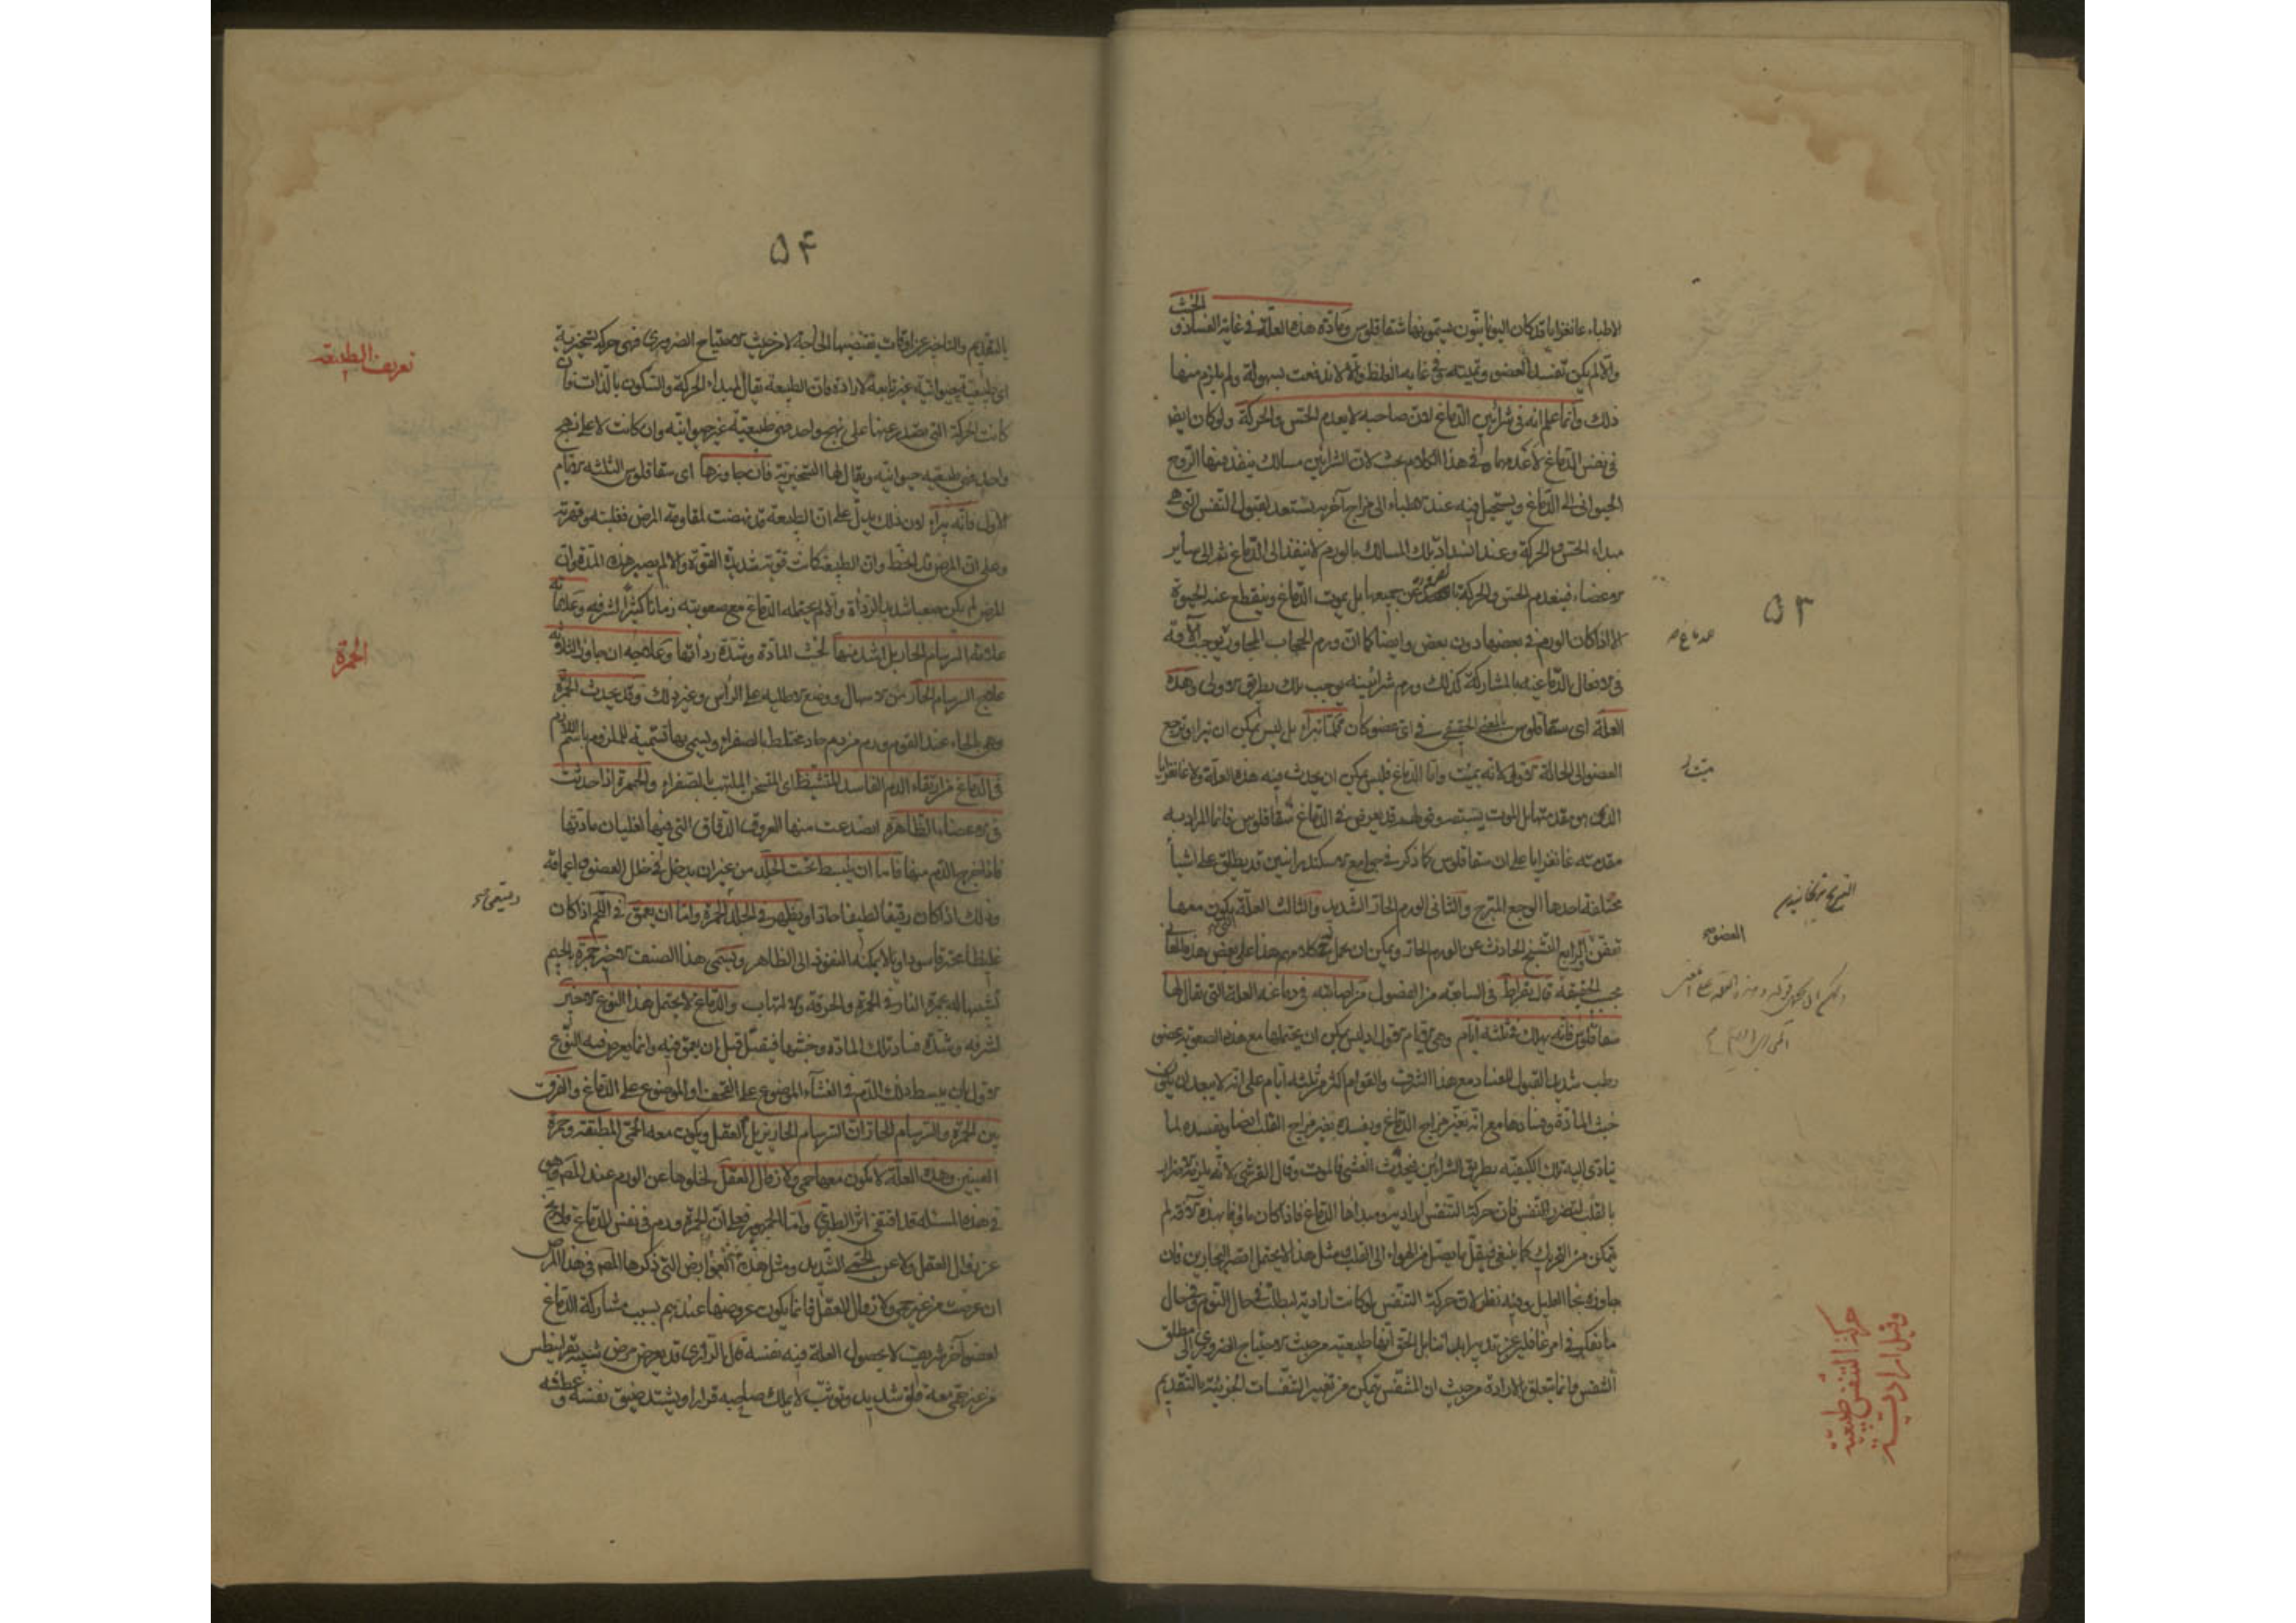 ٥٣
الخبث
الاطباء غانغرايا قد كان اليونانيون يسمونها شقاقلوس ومادة هذه العلة في غاية الفساد و
والا لم يكن تفسد العضو وتميته في غاية الغلظ والا لاندفعت بسهولة ولم يلزم منها
ذلك وانما علم انه في شرائين الدماغ لان صاحبه لا يعدم الحس والحركة ولو كان ايضا
في نفس الدماغ لاعدمهما وفي هذا الكلام بحث لان الشرائين مسالك ينفذ منها الروح
الحيواني الى الدماغ ويستحيل فيه عند الاطباء الى مزاج آخر به يستعد لقبول النفس التي هي
مبداء الحس والحركة وعند انسداد تلك المسالك بالورم لا ينفذ الى الدماغ ثم الى ساير
الاعضاء فينعدم الحس والحركة عن جميعها بل يموت الدماغ وينقطع عنه الحيوة
الا اذا كان الورم في بعضها دون بعض وايضا كما ان ورم الحجاب المجاور يوجب الآفة
في الافعال الدماغية بالمشاركة كذلك ورم شرائينه يوجب ذلك بطريق الاولى وهذه
العلة اى سقاقلوس بالمعنى الحقيقي في اى عضو كان قلما تبراء بل ليس يمكن ان يبرا ويرجع
العضو الى الحالة الاولى لانه يميت واما الدماغ فليس يمكن ان يحدث فيه هذه العلة ولا غانغرايا
الذي هو مقدمتها بل الموت يسبقه وقولهم قد يعرض في الدماغ شقاقلوس فانما المراد به
مقدمته غانغرايا على ان سقاقلوس كما ذكر في جوامع الاسكندرانيين قد يطلق على اشياء
مختلفة احدها الوجع المبرح والثاني الورم الحار الشديد والثالث العلة يكون معها
تعفن والرابع التشنج الحادث عن الورم الحار ويمكن ان يحمل كلامهم هذا على بعض هذه المعاني
بحسب الحقيقة قال بقراط في السابعة من الفصول من اصابته في دماغه العلة التي يقال لها
سقاقلوس فانه يهلك في ثلثة ايام وهي الايام الاول اذ ليس يمكن ان يحتملها مع هذه الصعوبة عضو
رطب شديد القبول للفساد مع هذا الشرف والقوام اكثر من ثلثة ايام على انه لا يبعد ان يكون
خبث المادة وفسادها مع انه يغير مزاج الدماغ ويفسده يغير مزاج القلب ايضا ويفسده لما
تتادى اليه تلك الكيفية بطريق الشرائين فيحدث الغشي فالموت وقال القرشي لانه يلزمه ضرار
بالقلب لتضرر التنفس فان حركة التنفس ارادية ومبداها الدماغ فاذا كان ماوفا بهذه الآفة لم
يتمكن من التحريك كما ينبغي فيقل ما يصل من الهواء الى القلب مثل هذا لا يحتمل اقصر البحارين فان
جاوزه نجا العليل وفيه نظر لان حركة التنفس لو كانت ارادية لبطلت في حال النوم وفي حال
ما نفكر في امر غافلين عن تدبيرها بل الحق انها طبيعية من حيث الاحتياج الضروري الى مطلق
التنفس وانما يتعلق بالارادة من حيث ان المتنفس يتمكن من تغيير التنفسات الجزئية بالتقديم
العضو
حركة التنفس طبيعية
وقيل ارادية
٥٤
بالتقديم والتاخير عن اوقات يقتضيها الحاجة لا من حيث الاحتياج الضروري فهي حركة تسخيرية
اى طبيعية حيوانية غير تابعة للارادة فان الطبيعة يقال لمبداء الحركة والسكون بالذات فان
كانت الحركة التي يصدر عنها على نهج واحد فهي طبيعية غير حيوانية وان كانت لا على نهج
واحد فهي طبيعية حيوانية ويقال لها التسخيرية فان جاوزها اى سقاقلوس الثلثة الايام
الاول فانه يبراء لان ذلك يدل على ان الطبيعة قد نهضت لمقاومة المرض فغلبته وقهرته
وعلى ان المرض قد انحط وان الطبيعة كانت قوية شديدة القوة والا لم يصبر هذه المدة وان
المرض لم يكن صعبا شديد الرداءة والا لم يحتمله الدماغ مع صعوبته زمانا كثيرا لشرفه وعلاماته
علامة السرسام الحار بل اشد منها لخبث المادة وشدة ردائتها وعلاجه ان جاوز الثلاثة
علاج السرسام الحار من الاسهال ووضع الاطلية على الرأس وغير ذلك وقد يحدث الحمرة
وهي بالحاء عند القوم ورم من دم حاد مختلط بالصفراء ويسمى بها تسمية للملزوم باسم اللازم
في الدماغ من ارتقاء الدم الفاسد المتشيط اى المتسخن الملتهب بالصفراء والحمرة اذا حدثت
في الاعضاء الظاهرة انصدعت منها العروق الدقاق التي فيها لغليان مادتها
فاذا خرج الدم منها فاما ان ينبسط تحت الجلد من غير ان يدخل في خلل العضو واعماقه
وذلك اذا كان رقيقا لطيفا حادا ويظهر في الجلد الحمرة واما ان يعمق في اللحم اذا كان
غليظا محترقا سوداويا لا يمكنه النفوذ الى الظاهر ويسمى هذا الصنف الاخير جمرة بالجيم
تشبيها له بجمرة النار في الحمرة والحرقة والالتهاب والدماغ لا يحتمل هذا النوع الاخير
لشرفه وشدة فساد تلك المادة وخبثها فيقتل قبل ان يعمق فيه وانما يعرض فيه النوع
الاول بان ينبسط ذلك الدم في الغشاء الموضوع على القحف او الموضوع على الدماغ والفرق
بين الحمرة والسرسام الحار ان السرسام الحار يزيل العقل ويكون معه الحمى المطبقة وحمرة
العينين وهذه العلة لا يكون معها حمى ولا زوال العقل لخلوها عن الورم عند المصـ وهو
في هذه المسئلة قد اقتفى اثر الطبري واما الجمهور فعلى ان الحمرة ورم في نفس الدماغ فلا يخ
عن زوال العقل ولا عن الحمى الشديد ومثل هذه العوارض التي ذكرها المصـ في هذا المرض
ان عرضت من غير حمى ولا زوال العقل فانما يكون عروضها عندهم بسبب مشاركة الدماغ
لعضو آخر شريف لا بحصول العلة فيه نفسه قال الرازي قد يعرض مرض شبيه بقرانيطس
من غير حمى معه قلق شديد وتوثب لا يملك صاحبه قرارا ويشتد ضيق نفسه وعطشه
تعريف الطبيعة
الحمرة